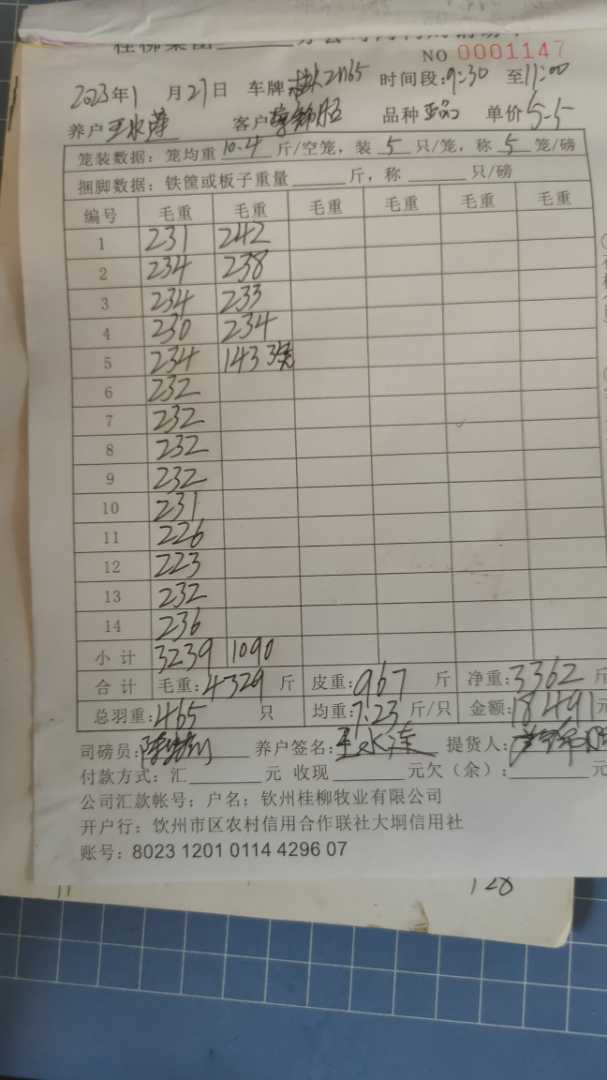 桂柳集团
NO 0001147
2023年1月27日 车牌: 21165 时间段: 9:30 至11:00
养户 王水莲 客户 品种 单价5.5
笼装数据: 笼均重 10.4 斤/空笼, 装 5 只/笼, 称 5 笼/磅
捆脚数据: 铁筐或板子重量 斤, 称 只/磅
编号 毛重 毛重 毛重 毛重 毛重 毛重
1 231 242
2 234 238
3 234 233
4 230 234
5 234 143 3笼
6 232
7 232
8 232
9 232
10 231
11 226
12 223
13 232
14 236
小计 3239 1090
合计 毛重: 4329 斤 皮重: 967 斤 净重: 3362 斤
总羽重: 465 只 均重: 7.23 斤/只 金额: 18491元
司磅员: 养户签名: 王水莲 提货人:
付款方式: 汇 元 收现 元欠(余): 元
公司汇款帐号: 户名: 钦州桂柳牧业有限公司
开户行: 饮州市区农村信用合作联社大垌信用社
账号: 8023 1201 0114 4296 07
128